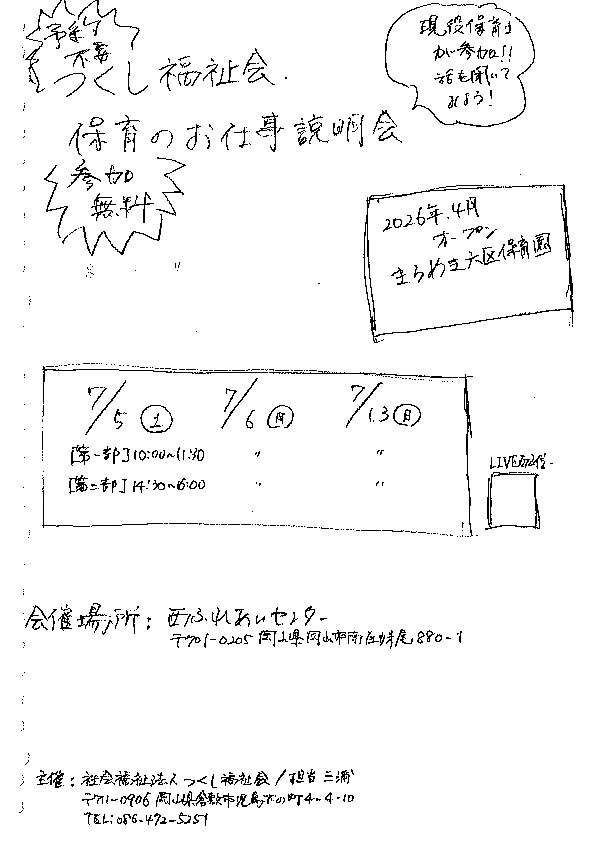 予約
不要
つくし福祉会
現役保育士
が参加!!
話を聞いて
みよう!
保育のお仕事説明会
参加
無料
2026年.4月
オープン
きらめき大区保育園
7/5 土
7/6 日
7/13 日
[第一部] 10:00~11:30 〃 〃
[第二部] 14:30~16:00 〃 〃
LIVE配信
会催場所: 西ふれあいセンター
〒701-0205 岡山県岡山市南区妹尾880-1
主催: 社会福祉法人つくし福祉会/担当 三浦
〒711-0906 岡山県倉敷市児島下の町4-4-10
TEL:086-472-5251